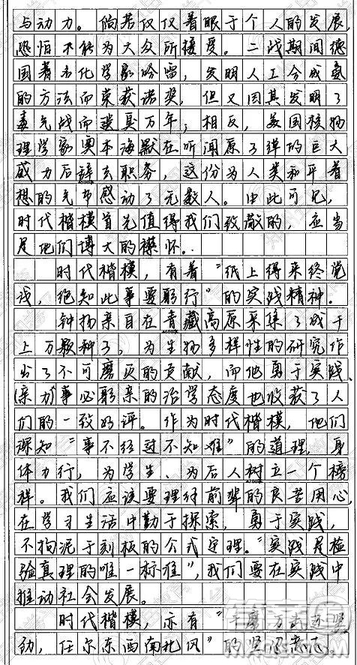 与动力。倘若仅仅着眼于个人的发展
恐怕不能为大众所接受。二战期间德
国著名化学家哈雷,发明人工合成氨
的方法而荣获诺奖,但又因其发明了
毒气战而遗臭万年,相反,美国核物
理学家奥本海默在听闻原子弹的巨大
威力后辞去职务,这份为人类和平着
想的气节感动了无数人。由此可见,
时代楷模首先值得我们致敬的,应当
是他们博大的襟怀。
时代楷模,有着“纸上得来终觉
浅,绝知此事要躬行”的实践精神。
钟扬亲自在青藏高原采集了成千
上万颗种子,为生物多样性的研究作
出了不可磨灭的贡献,而他勇于实践
亲力事必躬亲的治学态度也收获了人
们的一致好评。作为时代楷模,他们
深知“事不经过不知难”的道理,身
体力行,为学生、为后人树立一个榜
样。我们应该要理解前辈的良苦用心
在学习生活中勤于探索,勇于实践,
不拘泥于刻板的公式定理。“实践是检
验真理的唯一标准”,我们要在实践中
推动社会发展。
时代楷模,亦有“千磨万击还坚
劲,任尔东西南北风”的坚忍志志。